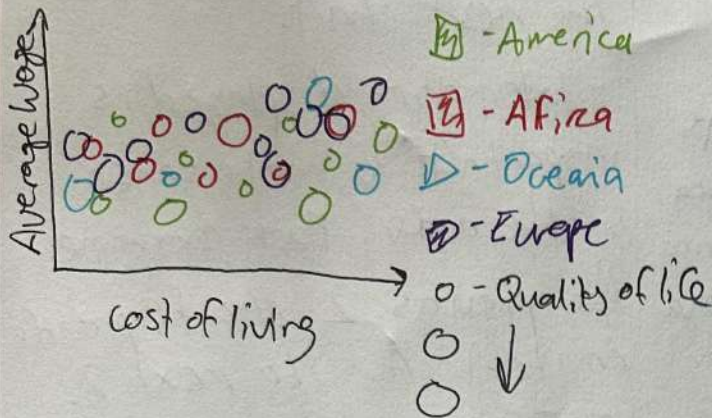 Average Wage
cost of living
- America
- Africa
- Oceania
- Europe
- Quality of life